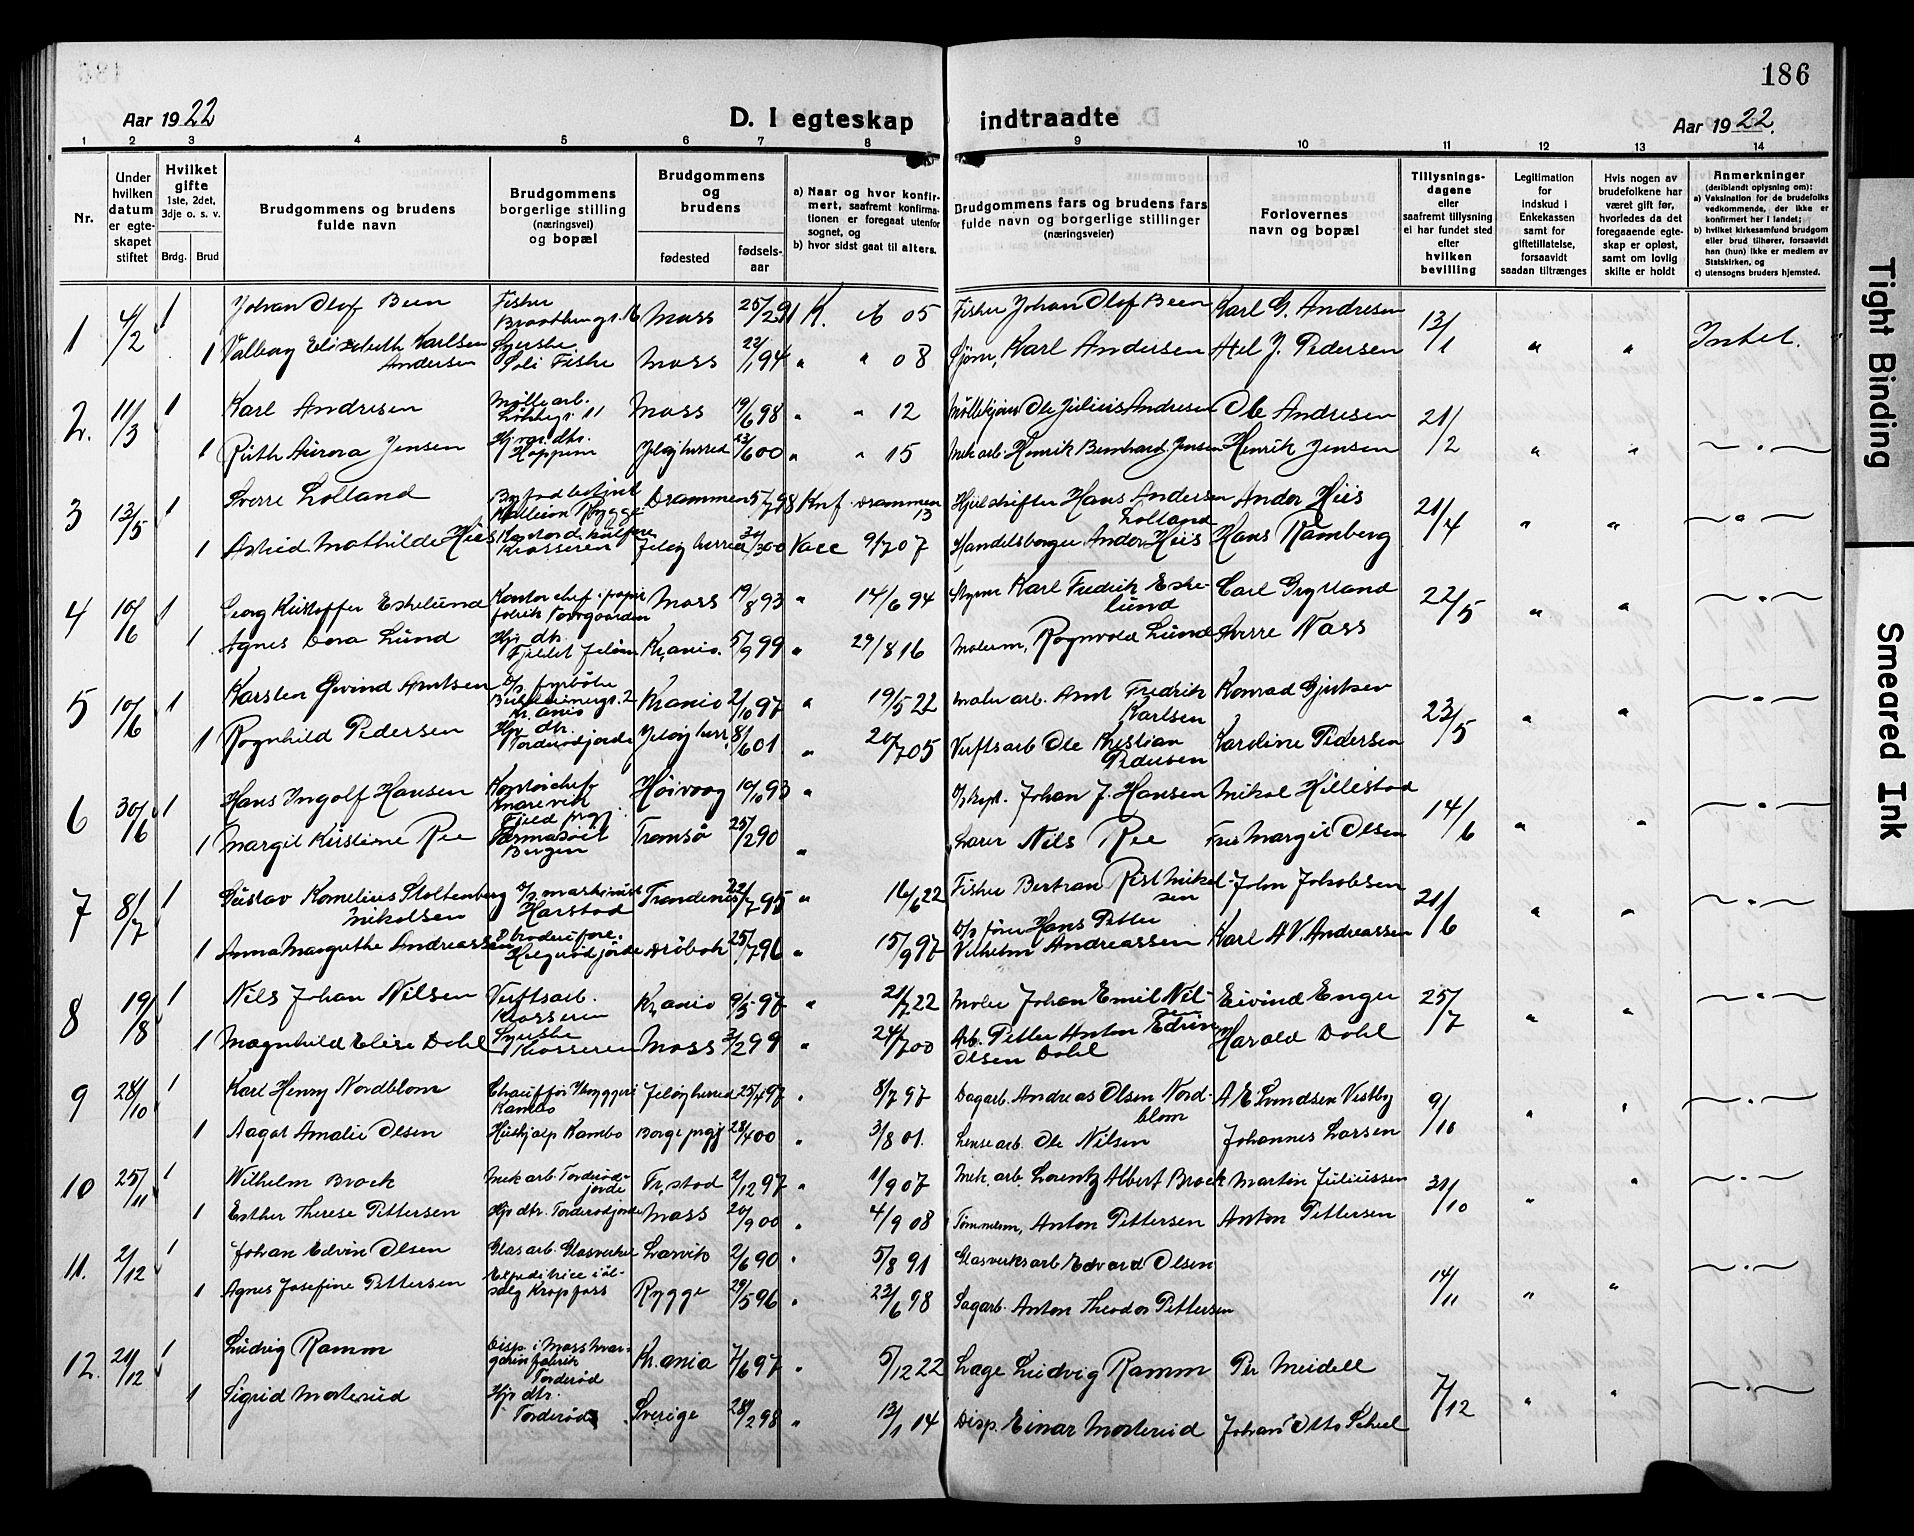 186
Aar 1922
D. I egteskap indtraadte
Aar 1922.
1 2 3 4 5 6 7 8 9 10 11 12 13 14
Nr.
Under hvilken datum er egteskapet stiftet
Hvilket gifte 1ste, 2det, 3dje o. s. v.
Brdg. Brud
Brudgommens og brudens fulde navn
Brudgommens borgerlige stilling (næringsvei) og bopæl
Brudgommens og brudens
fødested
fødsels-aar
a) Naar og hvor konfirmert, saafremt konfirmationen er foregaat utenfor sognet, og
b) hvor sidst gaat til alters.
Brudgommens fars og brudens fars fulde navn og borgerlige stillinger (næringsveier)
Forlovernes navn og bopæl
Tillysningsdagene eller saafremt tillysning ei har fundet sted efter hvilken bevilling
Legitimation for indskud i Enkekassen samt for giftetillatelse, forsaavidt saadan tiltrænges
Hvis nogen av brudefolkene har været gift før, hvorledes da det foregaaende egteskap er opløst, samt om lovlig skifte er holdt
Anmerkninger (deriblandt oplysning om):
a) Vaksination for de brudefolks vedkommende, der ikke er konfirmert her i landet;
b) hvilket kirkesamfund brudgom eller brud tilhører, forsaavidt han (hun) ikke er medlem av Statskirken, og
c) utensogns bruders hjemsted.
1 4/2 1 Johan Olof Been Fisker Moss 25/2 91 K. 05 Fisker Johan Olof Been Karl G. Andresen 13/1
1 Valborg Elisabeth Karlsen Andersen Syerske Moss 22/1 94 " " 08 Sjøm. Karl Andersen J. Pedersen " " Intet.
2. 11/3 1 Karl Andresen Møllearb. Moss 19/6 98 " " 12 Ole Julius Andresen Ole Andresen 21/2
1 Ruth Aurora Jensen Hjv. dtr. Jeløy herred 23/6 00 " " 15 Mek arb. Henrik Bernhard Jensen Henrik Jensen " " —"—
3 13/5 1 Sverre Lolland Drammen 5/7 98 Knf. Drammen 13 Hans Andersen Lolland Andor Hiis 21/4
1 Astrid Mathilde Hiis Krosseren Jeløy herred 30/3 00 9/7 07 Handelsborger Andor Hiis Hans Ramberg " " —"—
4 10/6 1 Georg Kristoffer Eskelund Kontorchef i papirfabrik Moss 19/8 93 " 14/6 94 Styrm Karl Fredrik Eskelund Carl Grylland 22/5
1 Agnes Dora Lund Hjv dtr. Kr.ania. 5/9 99 " 29/8 16 Malerm. Ragnvald Lund Sverre Nass " " —"—
5 10/6 1 Karsten Øivind Arntsen Kr.ania Kr.ania 2/10 97 " 19/5 22 Maler arb. Arnt Fredrik Karlsen Konrad Gjutsen 23/5
1 Ragnhild Pedersen Hjv dtr. Torderødjorde Jeløy herr. 8/6 01 " 20/7 05 Verftsarb Ole Kristian Pedersen Karoline Pedersen " " —"—
6 30/6 1 Hans Ingolf Hansen Kontorchef Høivaag 19/10 93 " Johan J. Hansen Mikal Hillestad 14/6
1 Margit Kirstine Ree Bergen Tromsø 25/2 90 " Lærer Nils Ree Fru Margit Olsen " " —"—
7 8/7 1 Gustav Kornelius Stoltenberg Mikalsen D/s maskinist Harstad Trondenes 22/7 95 " 16/6 22 Fisker Bertran Rist Mikalsen John Jakobsen 21/6
1 Anna Margrethe Andreassen Drøbak 25/7 96 " 15/9 97 D/s fører Hans Petter Vilhelm Andreassen Karl A V. Andreassen " " —"—
8 19/8 1 Nils Johan Nilsen Verftsarb. Krosseren Kr.ania 9/5 97 " 21/7 22 Maler Johan Emil Nilsen Eivind Enger 25/7
1 Magnhild Elise Dahl Syerske Krosseren Moss 3/2 99 " 24/7 00 Arb. Petter Anton Edvin Olsen Dahl Harald Dahl " " —"—
9 28/10 1 Karl Henry Nordblom Chauffør Kambo Jeløy herred 25/4 97 " 8/7 97 Dagarb. Andreas Olsen Nordblom A E Lundsen Vestby 9/10
1 Aagot Amalie Olsen Hushjælp Kambo Borge prgj 28/4 00 " 3/8 01. Lensearb. Ole Nilsen Johannes Larsen " " —"—
10 25/11 1 Wilhelm Brock Mek arb. Torderødjorde Fr.stad 2/12 97 " 1/9 07 Mek. arb. Lorentz Albert Brock Martin Juliussen 31/10
1 Esther Therese Pettersen Hjv dtr. Torderødjorde Moss 20/9 00 " 4/9 08 Tømmerm. Anton Pettersen Anton Pettersen " " —"—
11. 2/12 1 Johan Edvin Olsen Glasarb. Glasverket Larvik 2/6 90 " 5/8 91 Glasverksarb Edvard Olsen
1 Agnes Josefine Pettersen Expeditrice i ølsalg Kropfoss Rygge 29/5 96 " 23/6 98 Sagarb. Anton Theodor Pettersen 14/11 " " —"—
12. 21/12 1 Ludvig Ramm Disp. i Moss margarinfabrik Torderød Kr.ania 7/6 97 " 5/12 22 Læge Ludvig Ramm Per Meidell
1 Sigrid Mosterud Hjv dtr. Torderød Sverige 28/2 98 " 13/1 14 Disp. Einar Mosterud Johan Otto Scheel 7/12 " " —"—
Tight Binding
Smeared Ink